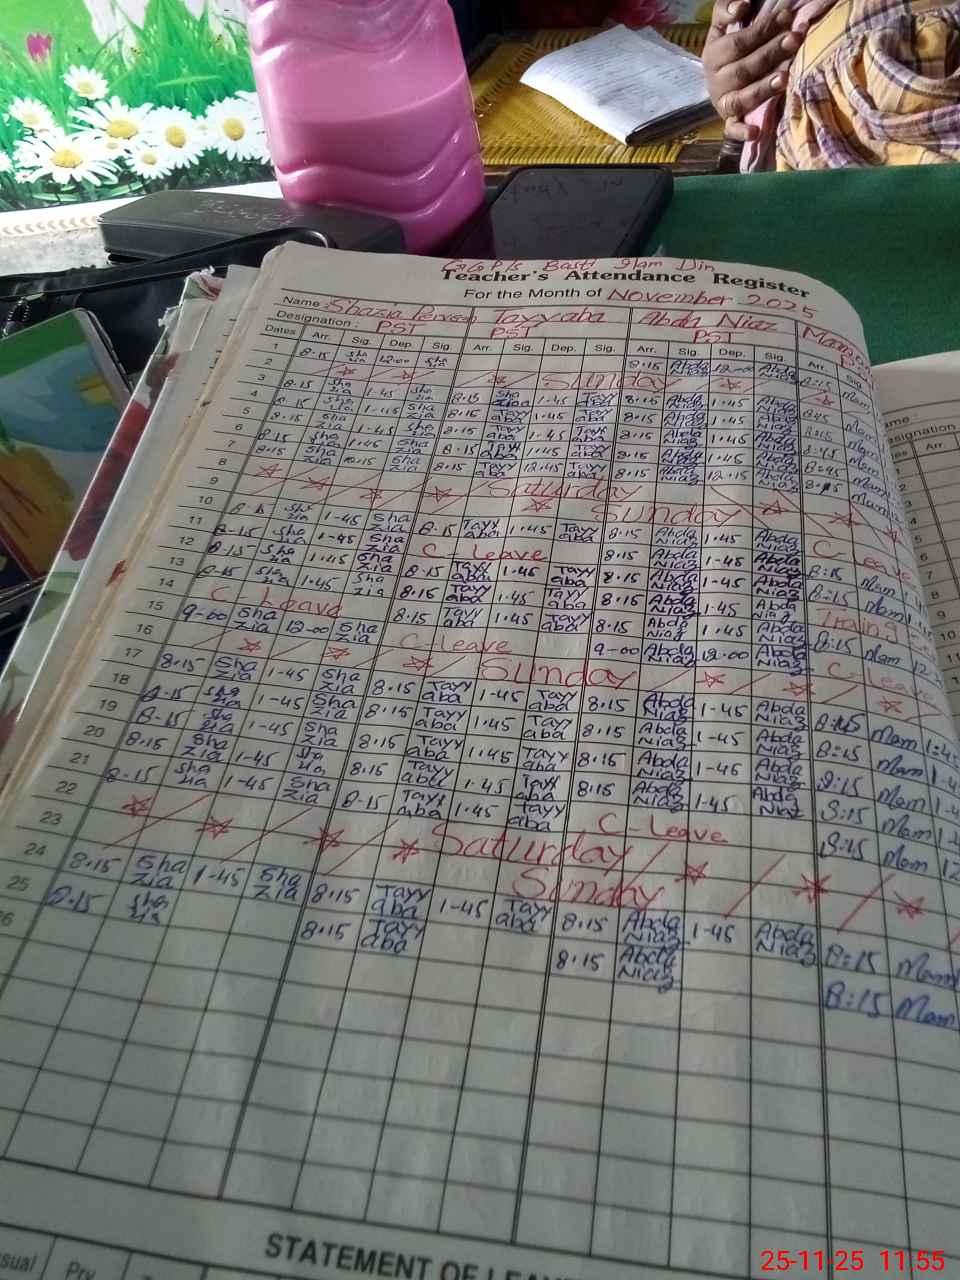 G.G.P/s. Basti Ilam Din
Teacher's Attendance Register
For the Month of November 2025
Name : Shazia Perveen Tayyaba Abda Niaz
Designation : PST PST PST
Dates Arr. Sig. Dep. Sig. Arr. Sig. Dep. Sig. Arr. Sig. Dep. Sig. Arr. Sig.
1 8.15 Sha zia 12.00 Sha zia 8.15 Abda Niaz 12.00 Abda Niaz 8:15 Mam
2 Sunday
3 8.15 Sha zia 1.45 Sha zia 8.15 1.45 Tayy aba 8.15 Abda Niaz 1.45 Abda Niaz Mam
4 8.15 Sha zia 1.45 Sha zia 8.15 Tayy aba 1.45 Tayy aba 8.15 Abda Niaz 1.45 Abda Niaz 8:15 Mam
5 8.15 Sha zia 1.45 Sha zia 8.15 Tayy aba 1.45 Tayy aba 8.15 Abda Niaz 1.45 Abda Niaz Mam
6 8.15 Sha zia 1.45 Sha zia 8.15 Tayy aba 1.45 Tayy aba 8.15 Abda Niaz 1.45 Abda Niaz Mam
7 8.15 Sha zia Sha zia 8.15 Tayy aba 12.45 Tayy aba 8.15 Abda Niaz 12.15 Abda Niaz Mam
8 Saturday
9 Sunday
10 8.15 Sha zia 1-45 Sha zia 8.15 Tayy aba 1.45 Tayy aba 8.15 Abda Niaz 1.45 Abda Niaz C-Leave
11 8.15 Sha zia 1-45 Sha zia C-Leave 8.15 Abda Niaz 1.45 Abda Niaz 8:15 Mam
12 8.15 Sha zia 1.45 Sha zia 8.15 Tayy aba 1.45 Tayy aba 8.15 Abda Niaz 1.45 Abda Niaz 8:15 Mam
13 8.15 Sha zia 1.45 Sha zia 8.15 Tayy aba 1.45 Tayy aba 8.15 Abda Niaz 1.45 Abda Niaz Traing
14 C-Leave 8.15 Tayy aba 1.45 Tayy aba 8.15 Abda Niaz 1.45 Abda Niaz 8:15 Mam
15 9-00 Sha zia 12-00 Sha zia C-Leave 9-00 Abda Niaz 12.00 Abda Niaz C-Leave
16 Sunday
17 8.15 Sha zia 1-45 Sha zia 8.15 Tayy aba 1-45 Tayy aba 8.15 Abda Niaz 1-45 Abda Niaz Mam 1:45
18 8.15 Sha zia 1-45 Sha zia 8.15 Tayy aba 1.45 Tayy aba 8.15 Abda Niaz 1-45 Abda Niaz 8:15 Mam
19 8.15 Sha zia 1-45 Sha zia 8.15 Tayy aba 1.45 Tayy aba 8.15 Abda Niaz 1-45 Abda Niaz 8:15 Mam
20 8.15 Sha zia 1-45 8.15 Tayy aba 1.45 Tayy aba 8.15 Abda Niaz 1.45 Abda Niaz 8:15 Mam
21 8.15 1-45 Sha zia 8.15 Tayy aba 1.45 Tayy aba C-Leave 8:15 Mam
22 Saturday
23 Sunday
24 8.15 Sha zia 1-45 Sha zia 8.15 Tayy aba 1-45 Tayy aba 8.15 Abda Niaz 1-45 Abda Niaz 8:15 Mam
25 8.15 Sha zia 8.15 Tayy aba 8.15 Abda Niaz 8:15 Mam
STATEMENT OF
25-11-25 11.55